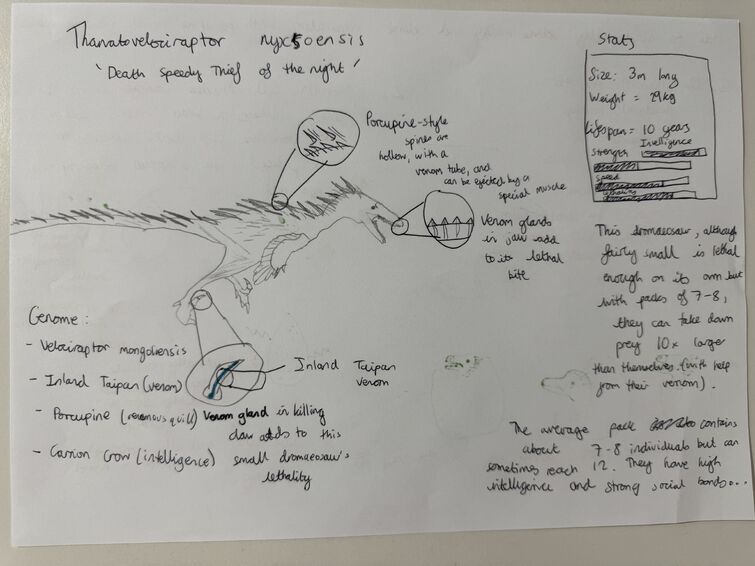 Thanatovelociraptor nyx5oensis
'Death speedy thief of the night'
Stats
Size: 3m long
Weight = 29kg
Lifespan = 10 years
Intelligence
Strength
Speed
Porcupine-style
spines are
hollow, with a
venom tube, and
can be ejected by a
special muscle
Venom glands
in jaw add
to its lethal
bite
This dromaeosaur, although
fairly small is lethal
enough on its own but
with packs of 7-8,
they can take down
prey 10x larger
than themselves (with help
from their venom).
Genome:
- Velociraptor mongoliensis
- Inland Taipan (venom)
- Porcupine (venomous quill)
- Carrion Crow (intelligence)
Inland Taipan
venom
Venom gland in killing
claw adds to this
small dromaeosaur's
lethality
The average pack contains
about 7-8 individuals but can
sometimes reach 12. They have high
intelligence and strong social bonds...